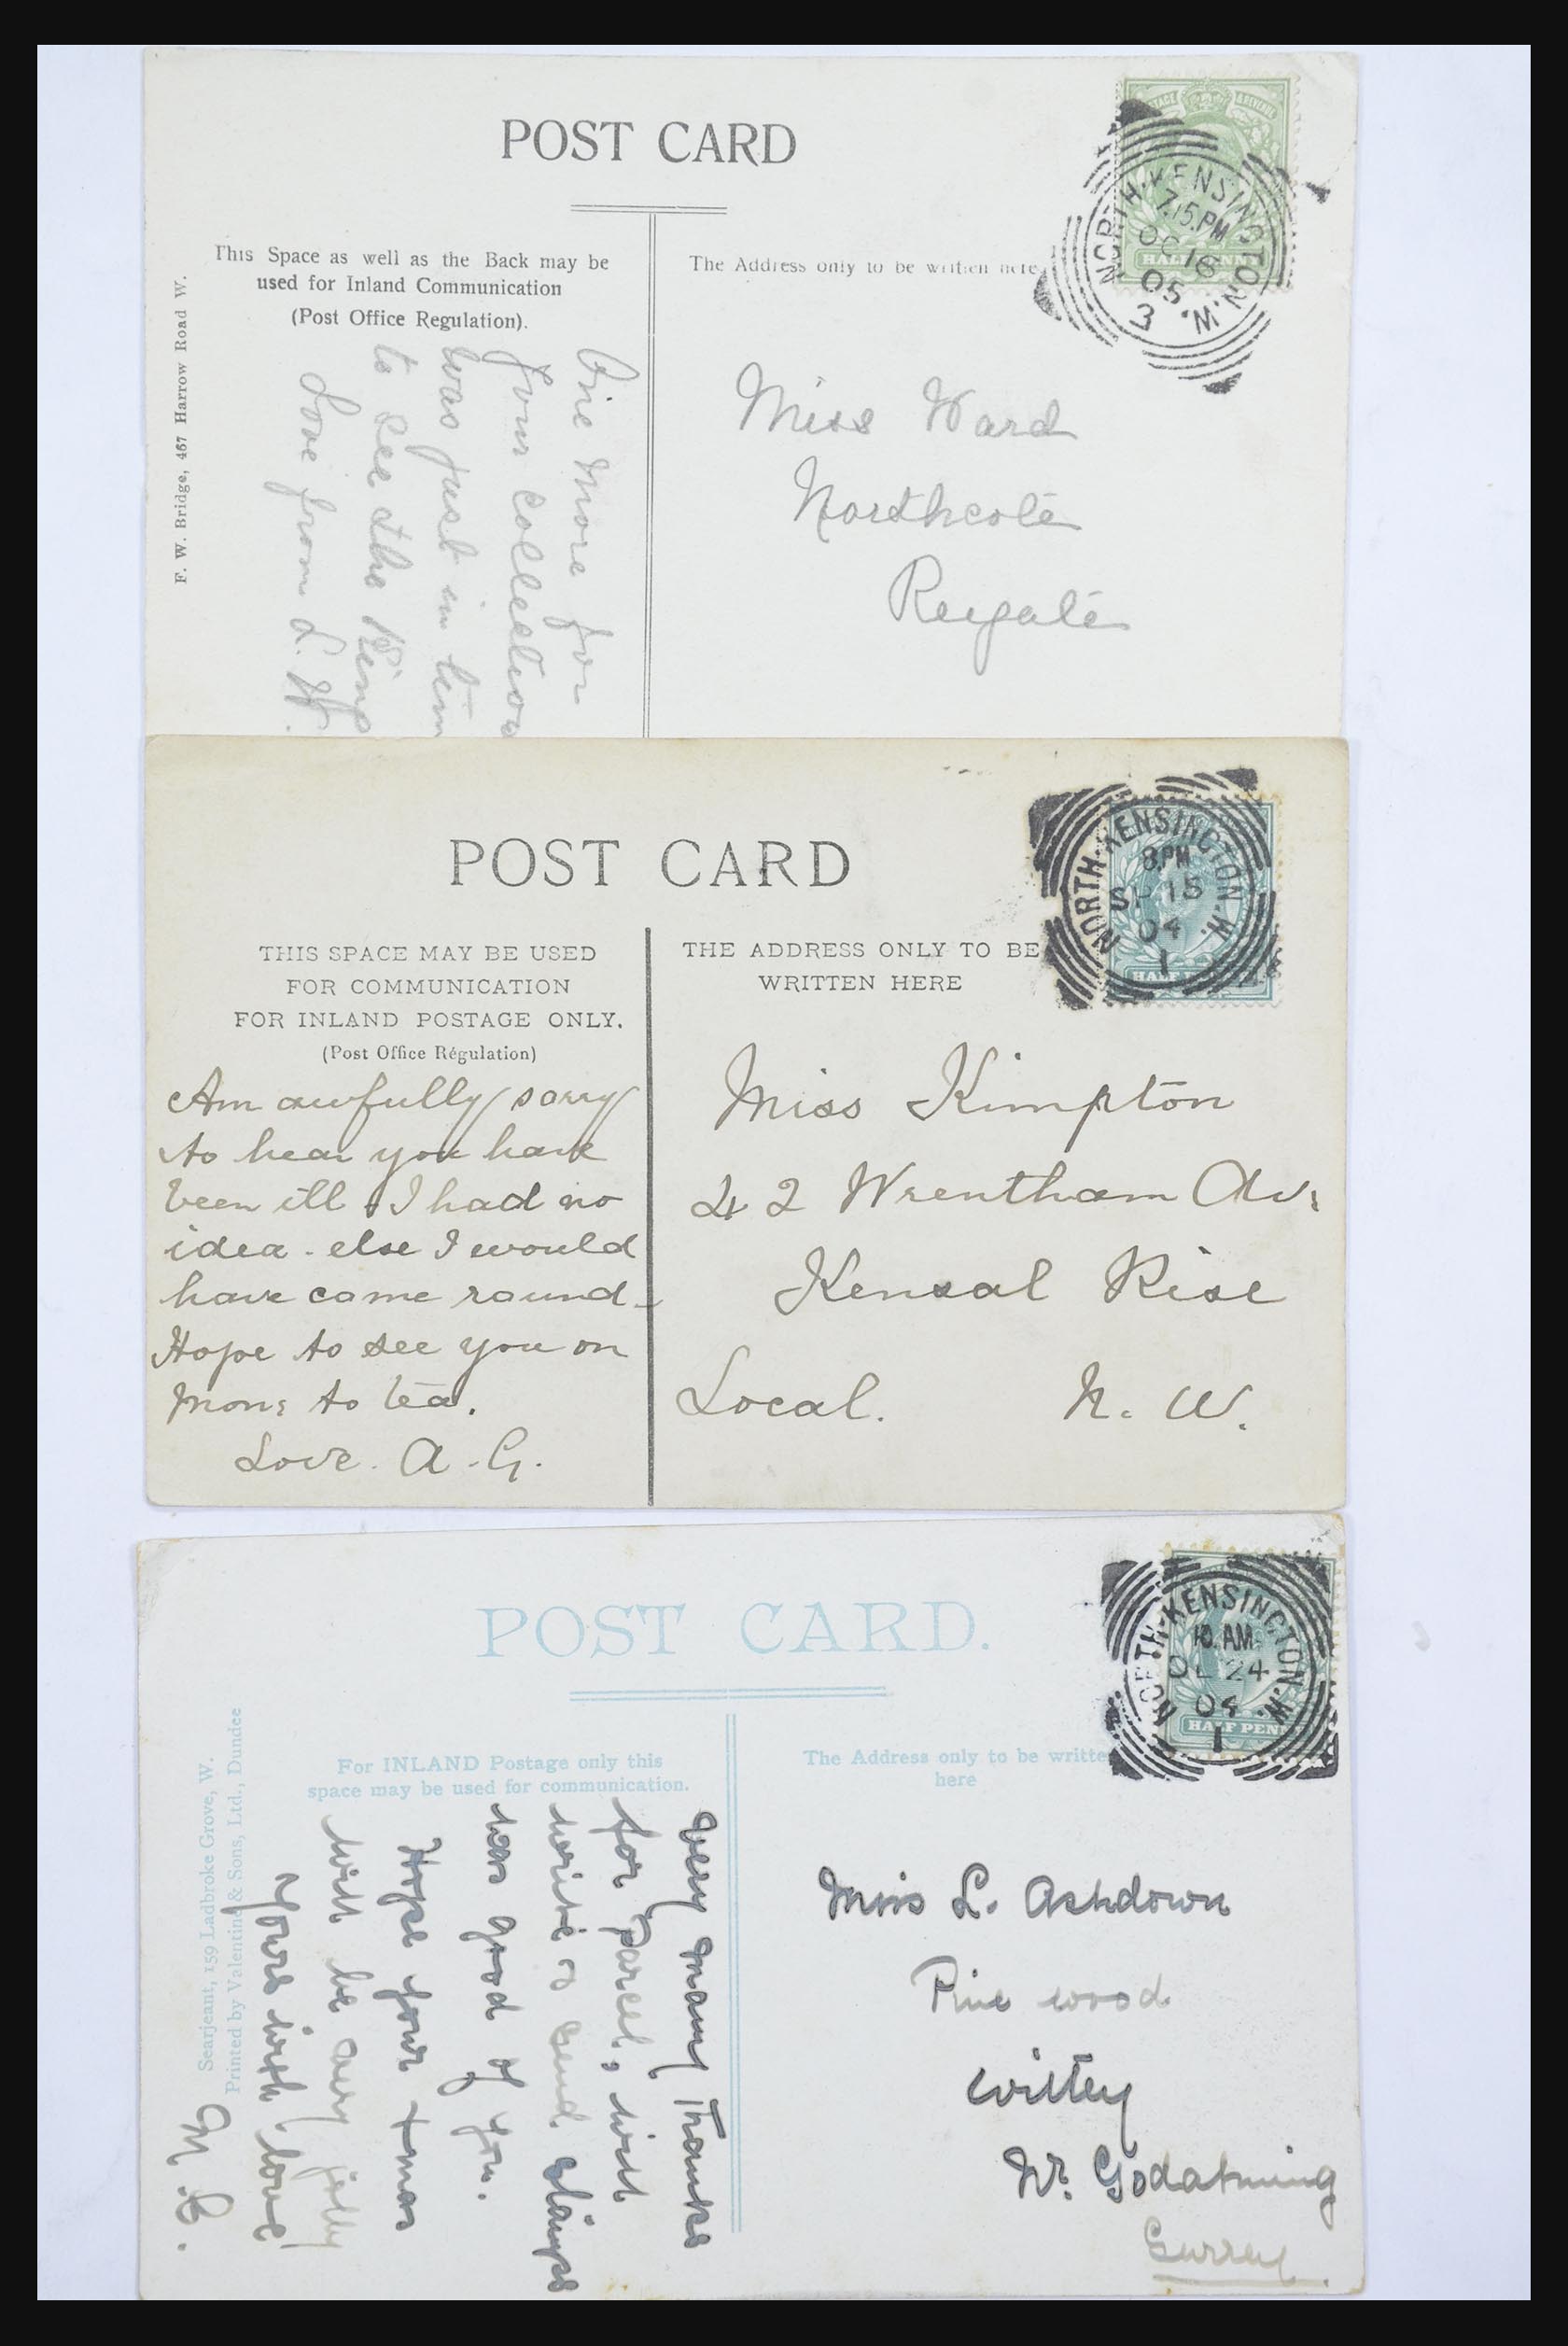 POST CARD
This Space as well as the Back may be
used for Inland Communication
(Post Office Regulation).
The Address only to be written here
F. W. Bridge, 467 Harrow Road W.
NORTH-KENSINGTON.W.
7.15.PM
OC 16
05
3
HALFPENNY
One more for
your collection
was just in time
to see the King
Love from L. W.
Miss Ward
Northcote
Reigate
POST CARD
THIS SPACE MAY BE USED
FOR COMMUNICATION
FOR INLAND POSTAGE ONLY.
(Post Office Régulation)
THE ADDRESS ONLY TO BE
WRITTEN HERE
NORTH-KENSINGTON.W.
8.PM
SP 15
04
1
HALF
Am awfully sorry
to hear you have
been ill I had no
idea - else I would
have come round -
Hope to see you on
Mon: to tea.
Love. A. G.
Miss Kimpton
42 Wrentham Av:
Kensal Rise
Local. N. W.
POST CARD.
For INLAND Postage only this
space may be used for communication.
The Address only to be writte
here
Searjeant, 159 Ladbroke Grove, W.
Printed by Valentine & Sons, Ltd., Dundee
NORTH-KENSINGTON.W.
10. AM
24
04
1
HALF PENN
Very many Thanks
for parcel, will
write & send stamps
was good of you.
Hope your Xmas
will be very jolly
Yours with love
M. C.
Miss L. Ashdown
Pine wood
Witley
Nr. Godalming
Surrey.